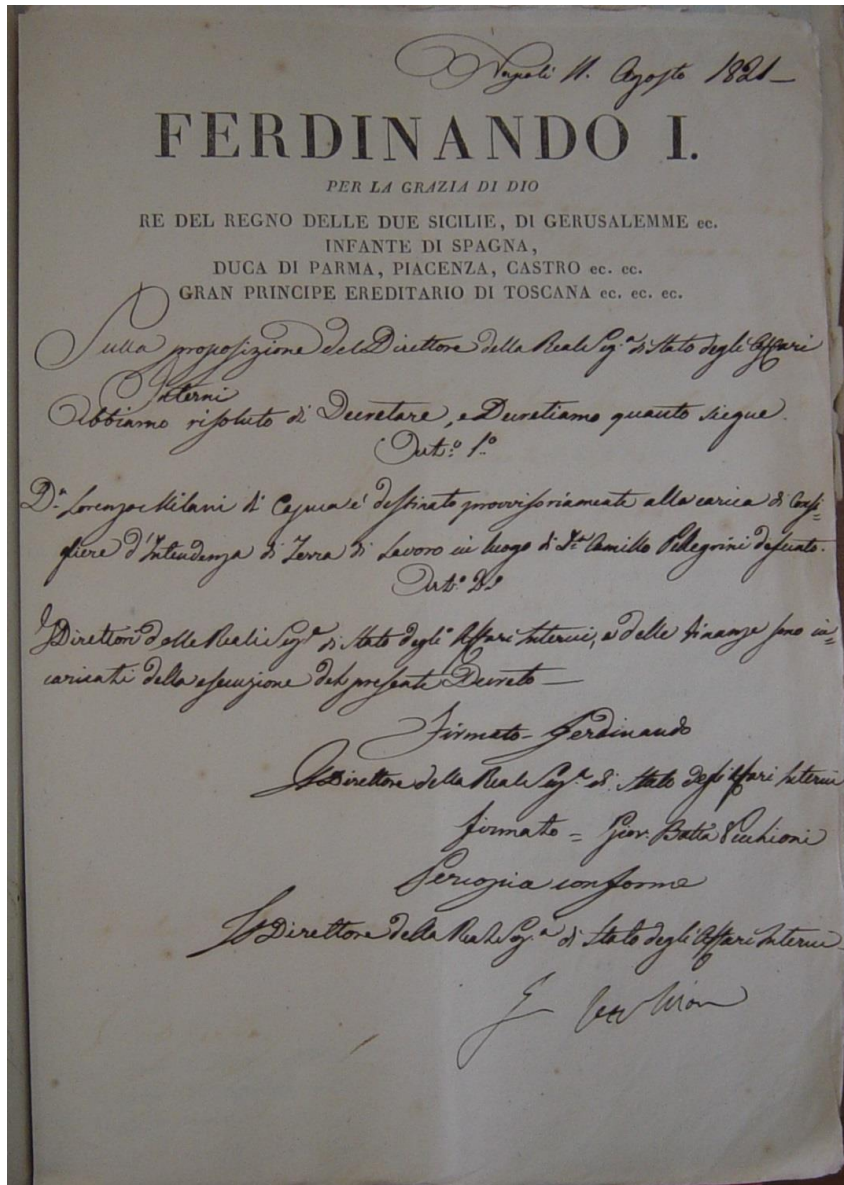 Napoli 11. Agosto 1821 —
FERDINANDO I.
PER LA GRAZIA DI DIO
RE DEL REGNO DELLE DUE SICILIE, DI GERUSALEMME ec.
INFANTE DI SPAGNA,
DUCA DI PARMA, PIACENZA, CASTRO ec. ec.
GRAN PRINCIPE EREDITARIO DI TOSCANA ec. ec. ec.
Sulla proposizione del Direttore della Reale Seg.ª di Stato degli Affari
Interni
Abbiamo risoluto di Decretare, e Decretiamo quanto siegue.
Art.º 1.º
D.n Lorenzo Milani di Capua é destinato provvisoriamente alla carica di Consi=
gliere d'Intendenza di Terra di Lavoro in luogo di D.n Camillo Pellegrini defunto.
Art.º 2.º
I Direttori delle Reali Seg.e di Stato degli Affari Interni, e delle Finanze sono in=
caricati della esecuzione del presente Decreto —
Firmato = Ferdinando
Il Direttore della Reale Seg.ª di Stato degli Affari Interni
firmato = Giov. Batta Vecchioni
Per copia conforme
Il Direttore della Reale Seg.ª di Stato degli Affari Interni
G Vecchioni